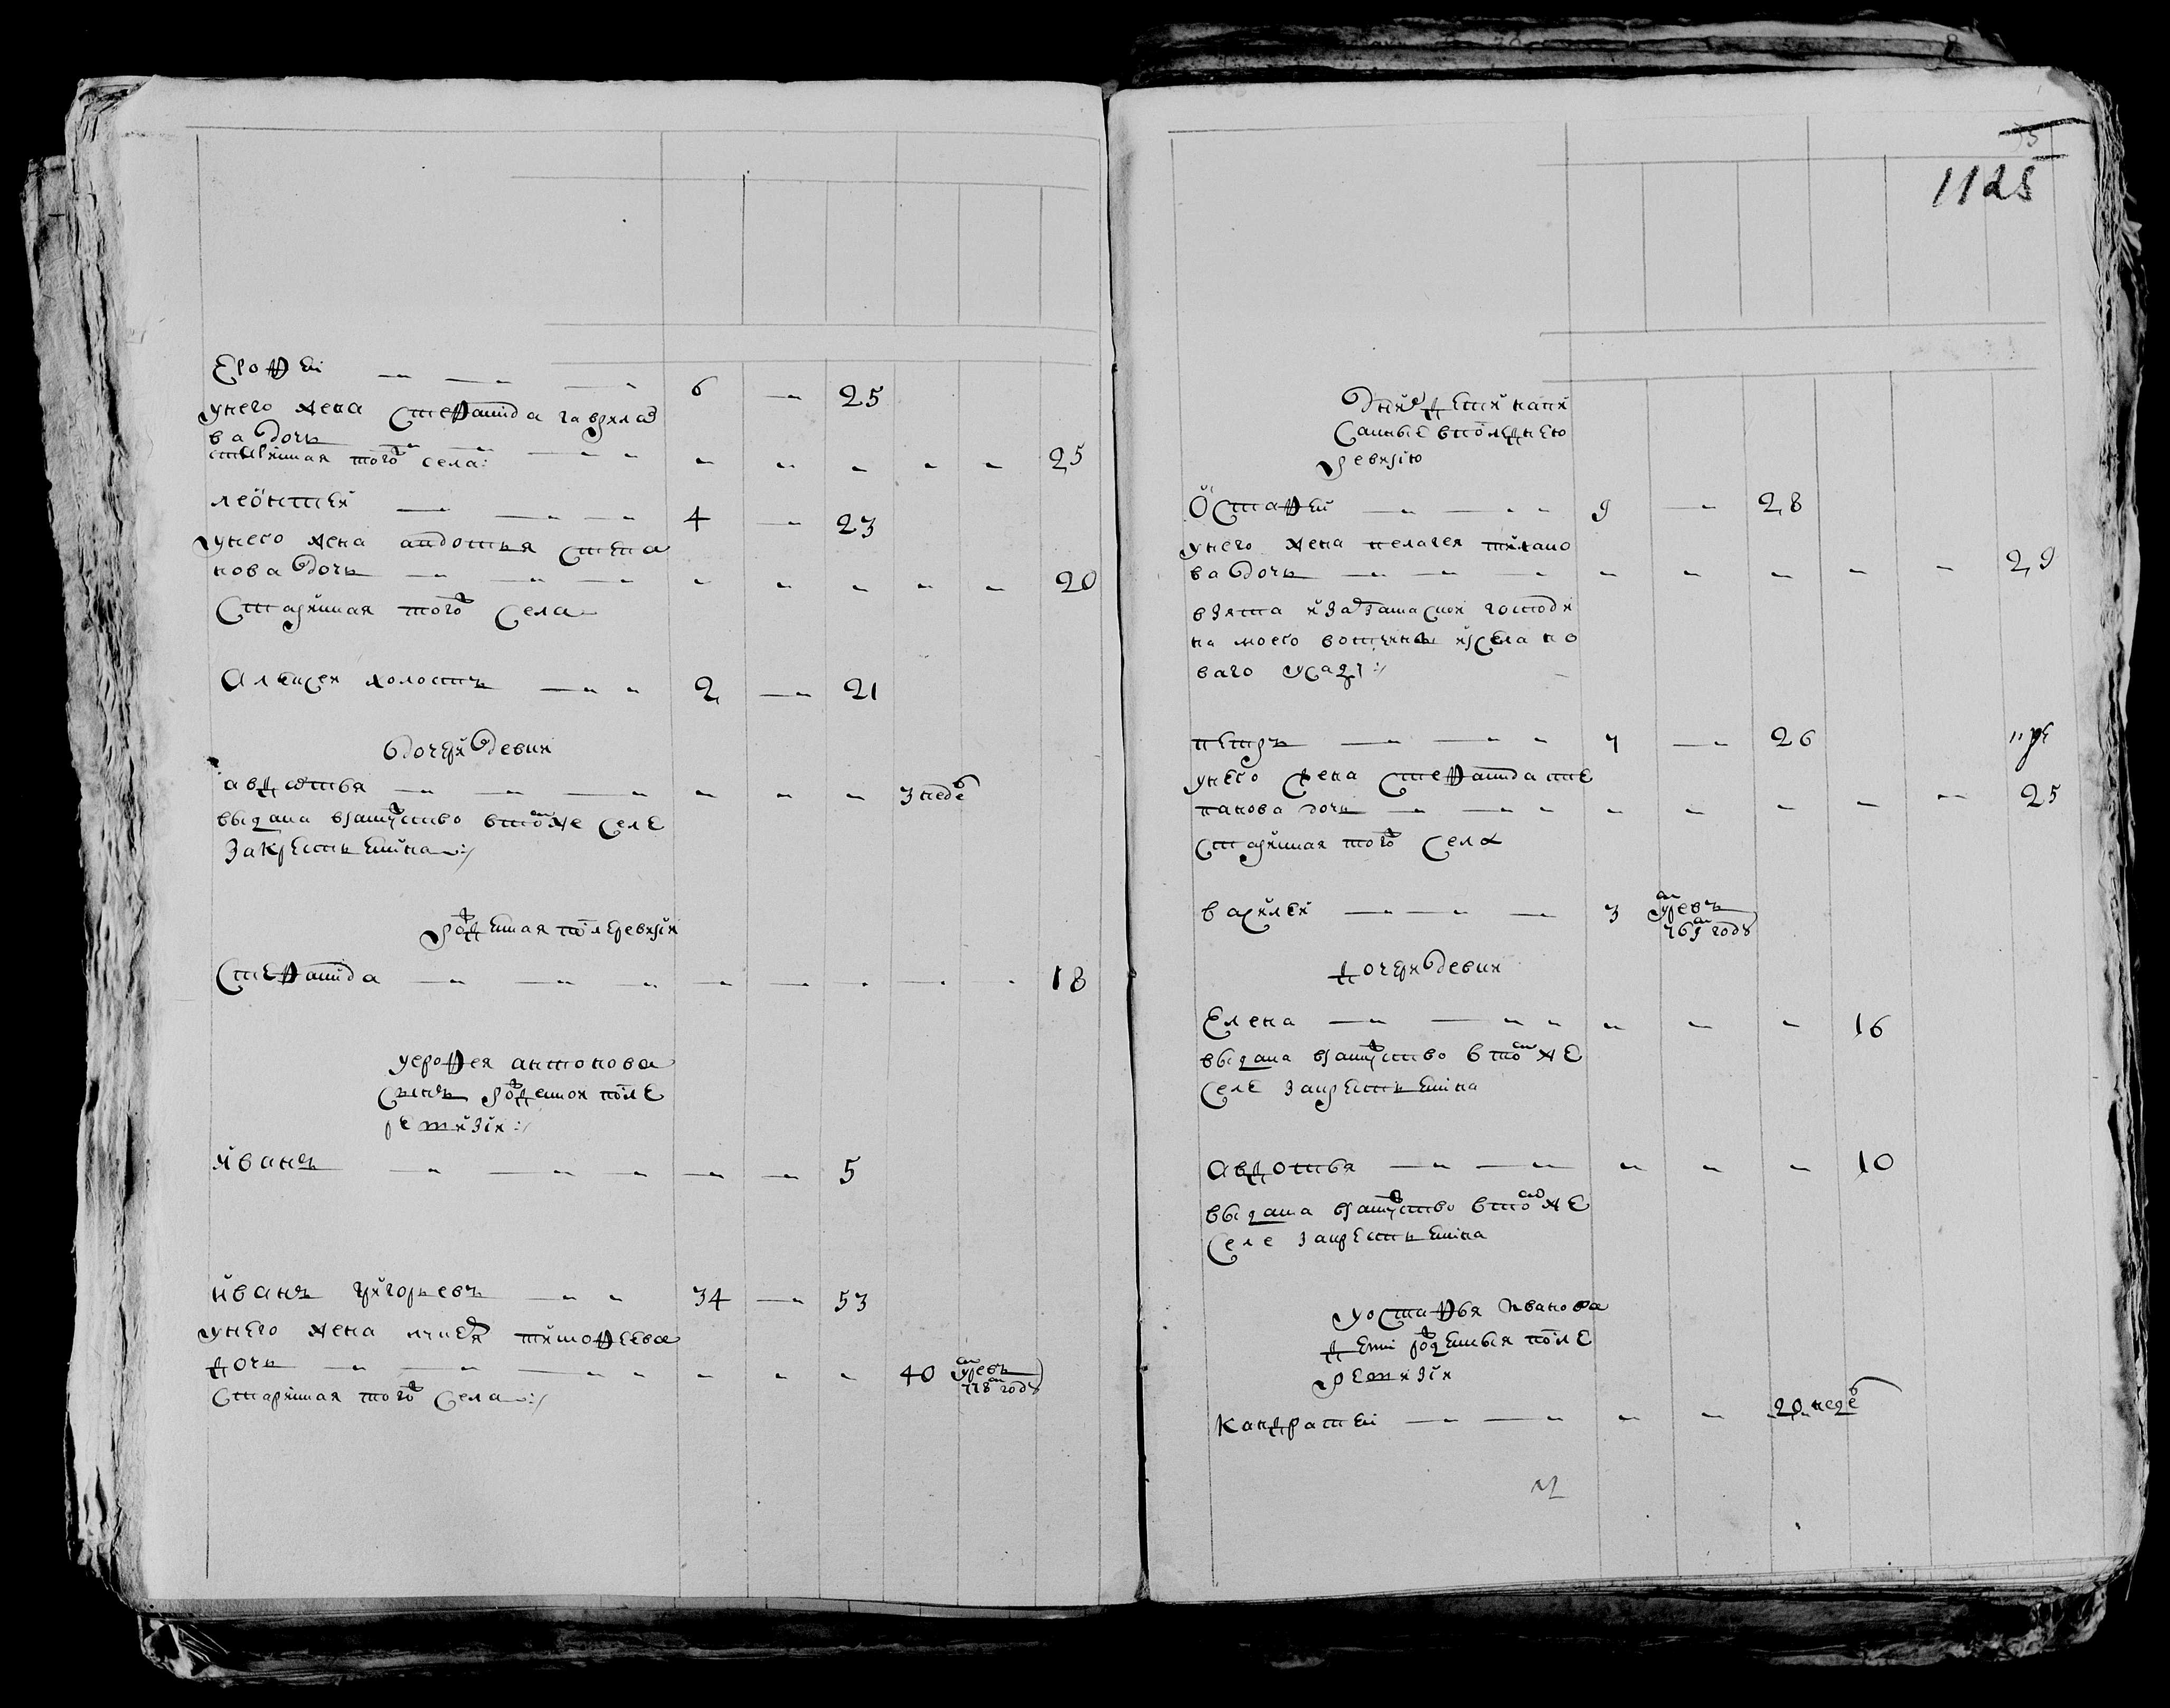 Ерофеi 6 25
унего жена стефанида гаврило
ва дочь
старинная того села: 25
леонтей 4 23
унего жена авдотья степа
нова дочь 20
старинная того села
алексеи холостъ 2 21
дочери девки
авдотья 3 неде
выдана взамуство втомже селе
закрестьянина:/
рожденная послеревизiи
стефанида 18
уерофея антонова
сынъ рожденой после
ревизiи:/
иванъ 5
иванъ григорьевъ 34 53
унего жена тимофеева
дочь 40 умре въ
778 году
старинная того села:/
1125
дети напи
санные впоследнею
ревизiю
остафей 9 28
унего жена пелагея
ва дочь 29
взята господи
на моего вотчины изсела но
ваго усада:/
петръ 7 26
унего жена стефанида сте
панова дочь 25
старинная того села
василеи 3 умре въ
769 году
дочери девки
Елена 16
выдана взамуство втомже
селе закрестьянина
авдотья 10
выдана взамуство втомже
селе закрестьянина
уостафья иванова
дети рожденныя после
ревизiи
Кандратеi 20 неде